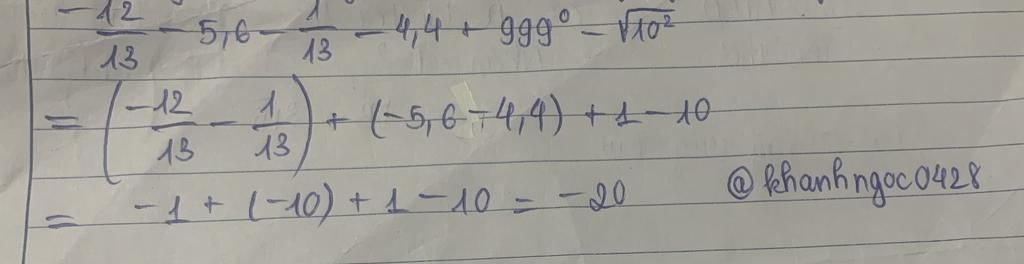 -12/13 - 5,6 - 1/13 - 4,4 + 999⁰ - √10²
= (-12/13 - 1/13) + (-5,6 - 4,4) + 1 - 10
= -1 + (-10) + 1 - 10 = -20 @khanhngoc0428